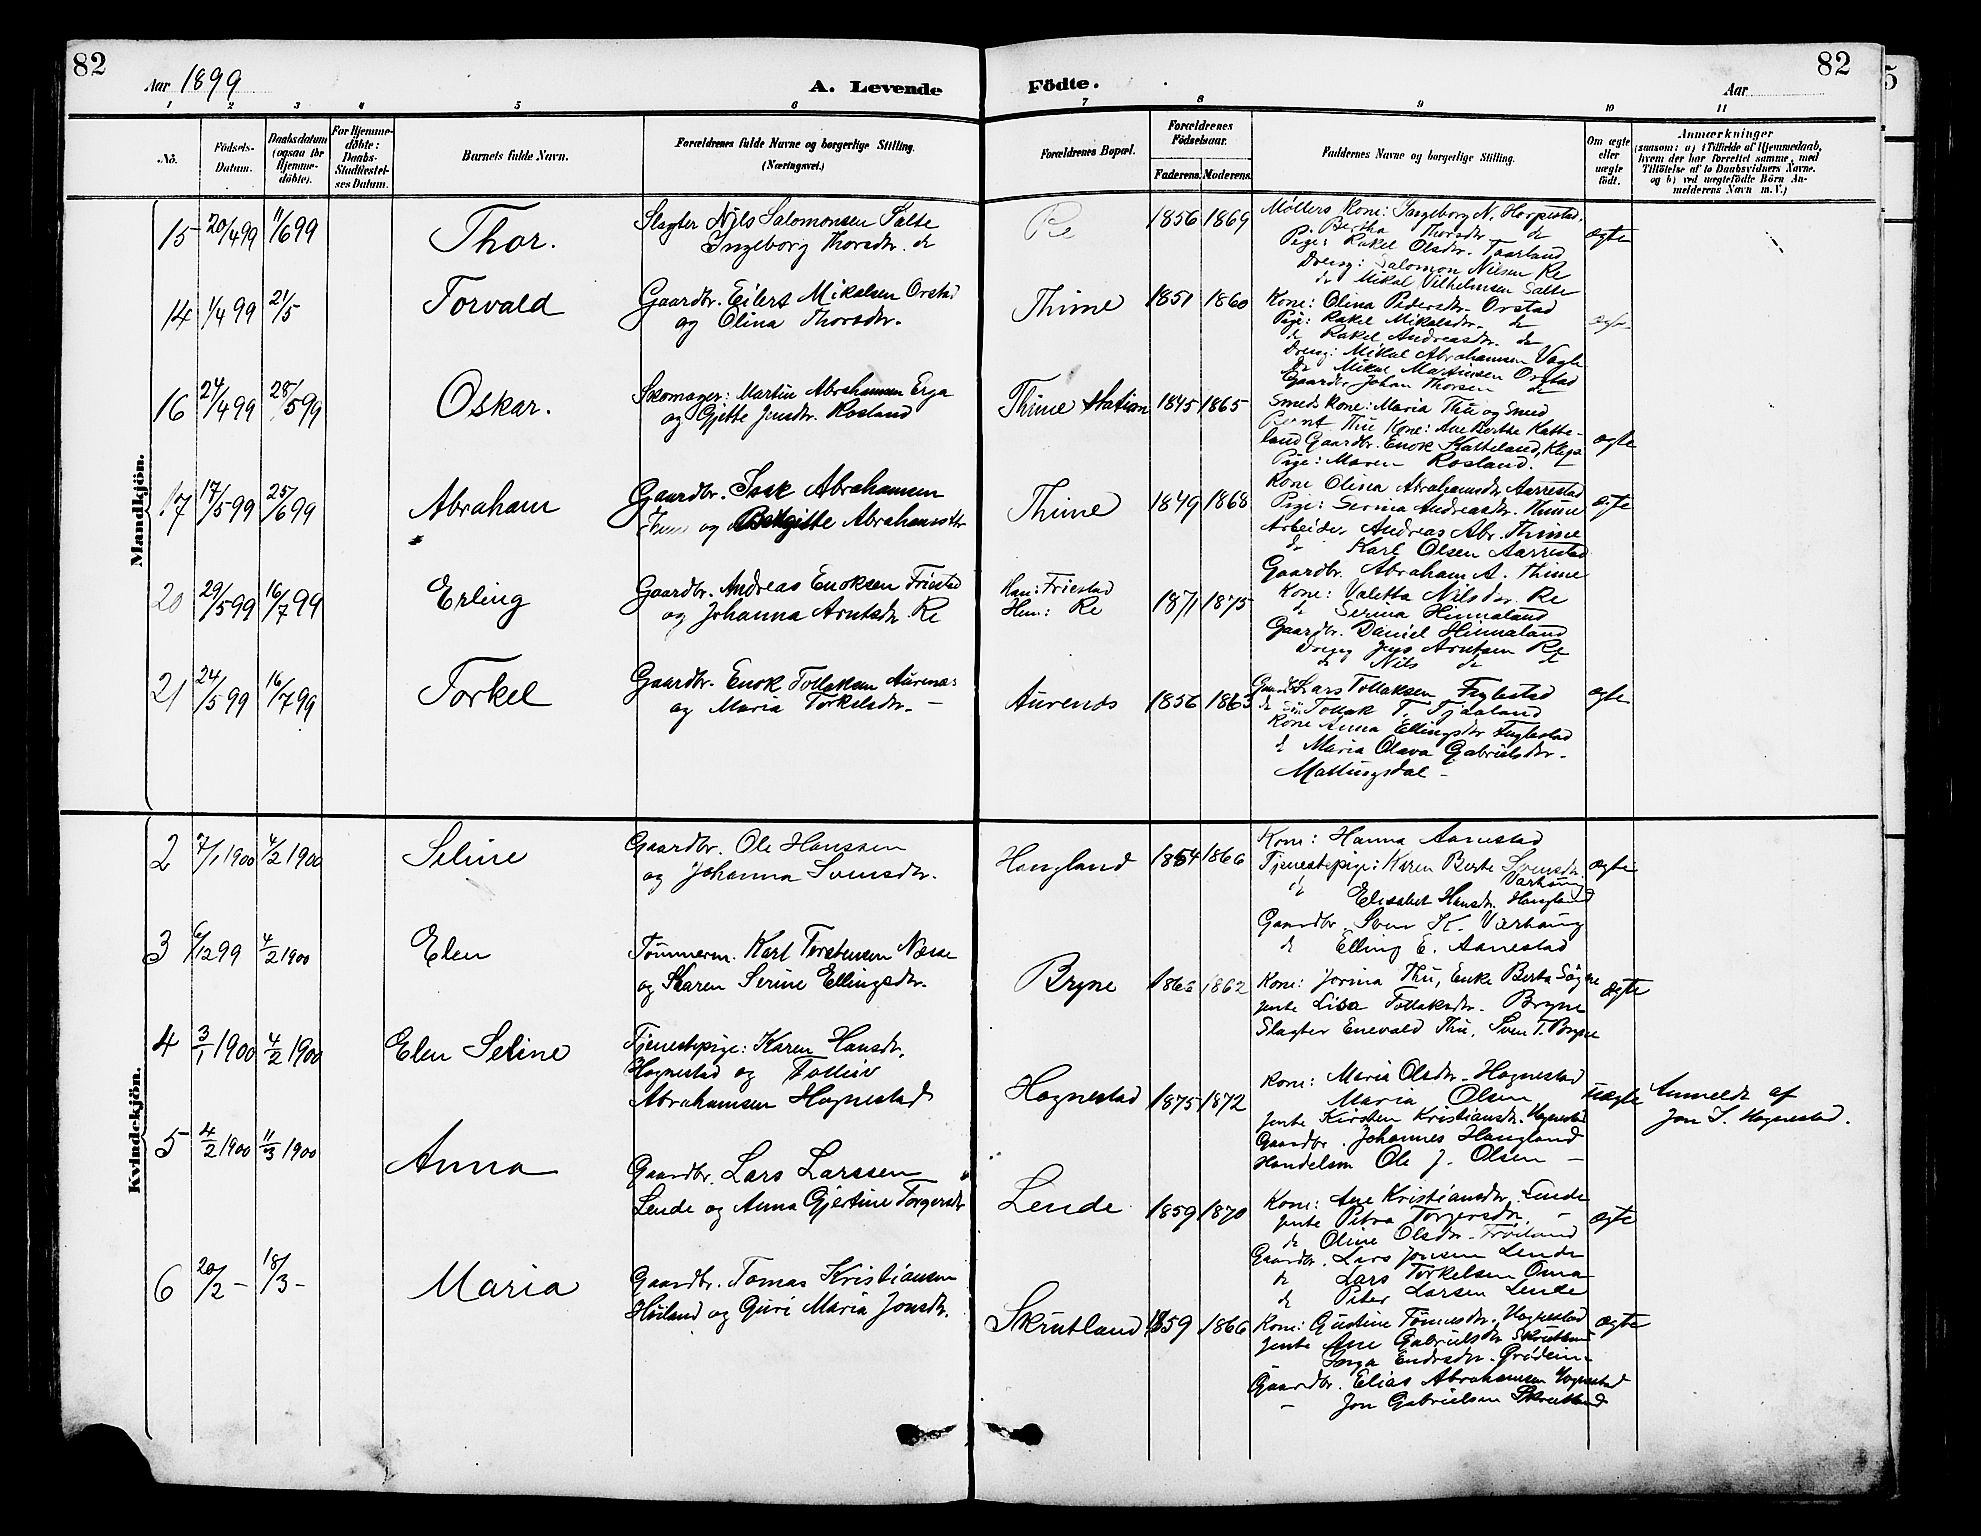 82
82
Aar 1899
A. Levende
Födte.
Aar
1 2 3 4 5 6 7 8 9 10 11
No.
Födsels-
Datum.
Daabsdatum
(ogsaa for
Hjemme-
döbte).
For Hjemme-
döbte:
Daabs-
Stadfæstel-
ses Datum.
Barnets fulde Navn.
Forældrenes fulde Navne og borgerlige Stilling.
(Næringsvei.)
Forældrenes Bopæl.
Forældrenes
Födselsaar.
Faderens. Moderens.
Faddernes Navne og borgerlige Stilling.
Om ægte
eller
uægte
födt.
Anmærkninger
(saasom: a) i Tilfælde af Hjemmedaab,
hvem der har forrettet samme, med
Tilföielse af to Daabsvidners Navne.
og b) ved uægtefödte Börn An-
melderens Navn m. V.)
Mandkjön.
15 20/4 99 11/6 99 Thor.
Slagter Nils Salomonsen Salte
Ingeborg Thorsdr. do
Re 1856 1869
Møllers Kone: Ingeborg N. Horpestad.
P. Bertha Thorsdr do
Pige: Rakel Olsdr. Taarland
Dreng: Salomon Nilsen Re
do Mikal Vilhelmsen Salte
ægte
14 1/4 99 21/5 Torvald
Gaardbr. Eilert Mikalsen Orstad
og Olina Thorsdr.
Thime 1851 1860
Kone: Olina Pedersdr. Orstad
Pige: Rakel Mikalsdr. do
do Rakel Andreasdr. do
Dreng: Mikal Abrahamsen Vagle
do Mikal Martinsen Orstad
Gaardbr. Johan Thorsen do
16 24/4 99 28/5 99 Oskar.
Skomager: Martin Abrahamsen Erga
og Gjette Jensdr. Rosland
Thime Station 1845 1865
Smeds Kone: Maria Thu og Smed
Bernt Thu Kone: Ane Berthe Katte-
land Gaardbr. Enok Katteland, Klep
Pige: Maren Rosland.
ægte
17 17/5 99 25/6 99 Abraham
Gaardbr. Isak Abrahamsen
Thime og Birgitte Abrahamsdr
Thime 1849 1868
Kone Olina Abrahamsdr Aarrestad
Pige: Serina Andreasdr. Thime
Arbeider Andreas Abr. Thime
do Karl Olsen Aarrestad
Gaardbr. Abraham A. Thime
ægte
20 29/5 99 16/7 99 Erling
Gaardbr. Andreas Enoksen Friestad
og Johanna Arntsdr. Re
Han: Friestad
Hun: Re
1871 1875
Kone: Valetta Nilsdr. Re
do Serina Hinnaland
Gaardbr. Daniel Hinnaland
Dreng Jens Arntsen Re
do Nils do do
21 24/5 99 16/7 99 Torkel
Gaardbr. Enok Tollaksen Aurenæs
og Maria Torkelsdr. –
Aurenes 1856 1863
Gaardbr. Lars Tollaksen Fuglestad
do Søn Tollak T. Tjaaland
Kone Anna Ellingsdr Fuglestad
do Maria Olava Gabrielsdr.
Mattingsdal –
ægte
Kvindekjön.
2 7/1 1900 4/2 1900 Seline
Gaardbr. Ole Hanssen
og Johanna Svensdr.
Haugland 1854 1866
Kone: Hanna Aanestad
Tjenestepige: Karen Berte Svensdr.
Varhaug
do Elisabet Hansdr. Haugland
Gaardbr Sven K. Varhaug
do Elling E. Aanestad
ægte
3 6/12 99 4/2 1900 Elen
Tømmerm. Karl Torstensen Næsse
og Karen Serine Ellingsdr.
Bryne 1862
Kone: Jorina Thu, Enke Berta Søyne
Jente Lisa Tollaksdr. Bryne
Slagter Enevald Thu, Sven T. Bryne
ægte
4 3/1 1900 4/2 1900 Elen Seline
Tjenestepige: Karen Hansdr.
Hognestad og Tolleiv
Abrahamsen Hognestad
Hognestad 1875 1872
Kone: Maria Olsdr. Hognestad
Maria Olsen
Jente Kirsten Kristiansdr. Hognestad
Gaardbr. Johannes Haugland
Handelsm Ole J. Olsen –
uægte
Anmeldt af
Jon T. Hognestad.
5 4/2 1900 11/3 1900 Anna
Gaardbr. Lars Larssen
Lende og Anna Gjertine Torgersdr
Lende 1859 1870
Kone: Ane Kristiansdr. Lende
Jente Petra Torgersdr. –
do Oline Olsdr. Frøiland
Gaardbr. Lars Jonsen Lende
do Lars Torkelsen Oma
do Peter Larsen Lende
ægte
6 20/2 – 18/3 – Maria
Gaardbr. Tomas Kristiansen
Høiland og Guri Maria Jonsdr.
Skrutland 1859 1866
Kone: Gustine Tønnesdr. Hognestad
Jente Ane Gabrielsdr Skrutland
– Inga Endresdr. Grødein –
Gaardbr. Elias Abrahamsen Hognestad
– Jon Gabrielsen Skrutland
ægte